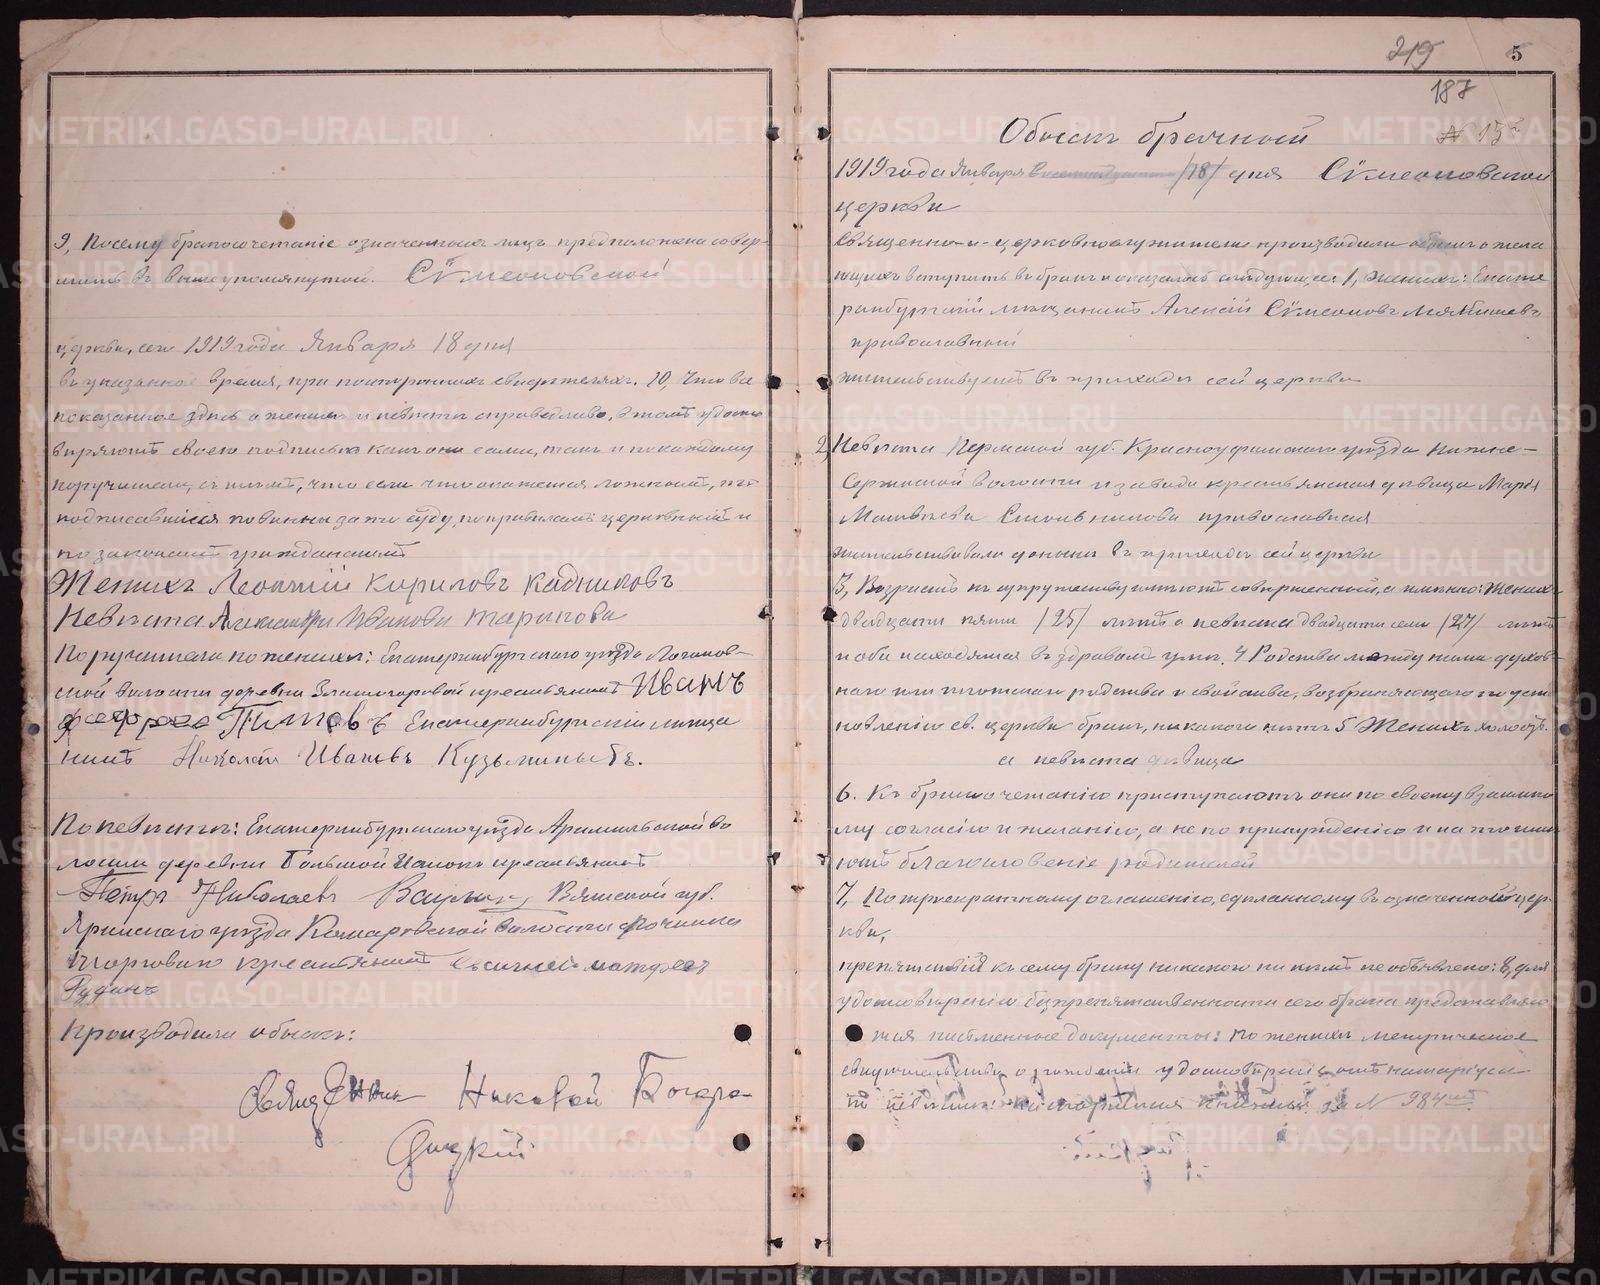 9, Посему бракосочетаніе означенныхъ лицъ предположено совер-
шить въ вышеупомянутой. Сѵмеоновской
церкви, сего 1919 года Января 18 дня
въ указанное время, при постороннихъ свидѣтеляхъ. 10, Что все
показанное здѣсь о женихѣ и невѣстѣ справедливо, въ томъ удосто
вѣряютъ своею подписью какъ они сами, такъ и по каждому
поручители, съ тѣмъ, что если что окажется ложнымъ, то
подписавшіеся повинны за то суду, по правиламъ церковнымъ и
по законамъ гражданскимъ
Женихъ Леонтій Кириловъ Кадниковъ
Невѣста Александра Иванова
Поручители по женихѣ: Екатеринбургскаго уѣзда Логинов-
ской волости деревни Златогоровой крестьянинъ Иванъ
Титовъ Екатеринбургскій мѣща
нинъ Николай Ивановъ Кузьминыхъ.
По невѣстѣ: Екатеринбургскаго уѣзда Арамильской во
лости деревни Большой Истокъ крестьянинъ
Петръ Николаевъ Вятской губ.
Яранскаго уѣзда волости Починка
крестьянинъ
Производили обыскъ:
Священникъ Николай Богоро-
дицкій
219 5
187
Обыскъ брачный № 15
1919 года Января /18/ дня Сѵмеоновской
церкви
Священно-и-церковнослужители производили обыскъ о жела
ющихъ вступить въ бракъ и оказалось слѣдующее: 1, Женихъ: Екате
ринбургскій мѣщанинъ Алексій Сѵмеоновъ
православный
жительствуетъ въ приходѣ сей церкви
2, Невѣста Пермской губ. Красноуфимскаго уѣзда Нижне-
Сергинской волости и завода крестьянская дѣвица Марія
Матвѣева православная
жительствовала донынѣ въ приходѣ сей церкви
3, Возрастъ къ супружеству имѣютъ совершенный, а именно: Женихъ
двадцати пяти /25/ лѣтъ а невѣста двадцати семи /27/ лѣтъ
и оба находятся въ здравомъ умѣ. 4 Родства между ними духов-
наго или плотскаго родства и свойства, возбраняющаго по уста
новленію св. церкви бракъ, никакого нѣтъ 5 Женихъ холостъ.
а невѣста дѣвица
6. Къ бракосочетанію приступаютъ они по своему взаимно
му согласію и желанію, а не по принужденію и на то имѣ
ютъ благословеніе родителей
7, По троекратному оглашенію, сдѣланному въ означенной цер-
кви,
препятствій къ сему браку никакого ни кѣмъ не объявлено: 8, для
удостовѣренія безпрепятственности сего брака представляю
тся письменные документы: по женихѣ метрическое
свидѣтельство о рожденіи удостовѣреніе отъ нотаріуса
по невѣстѣ: паспортная книжка за № 984